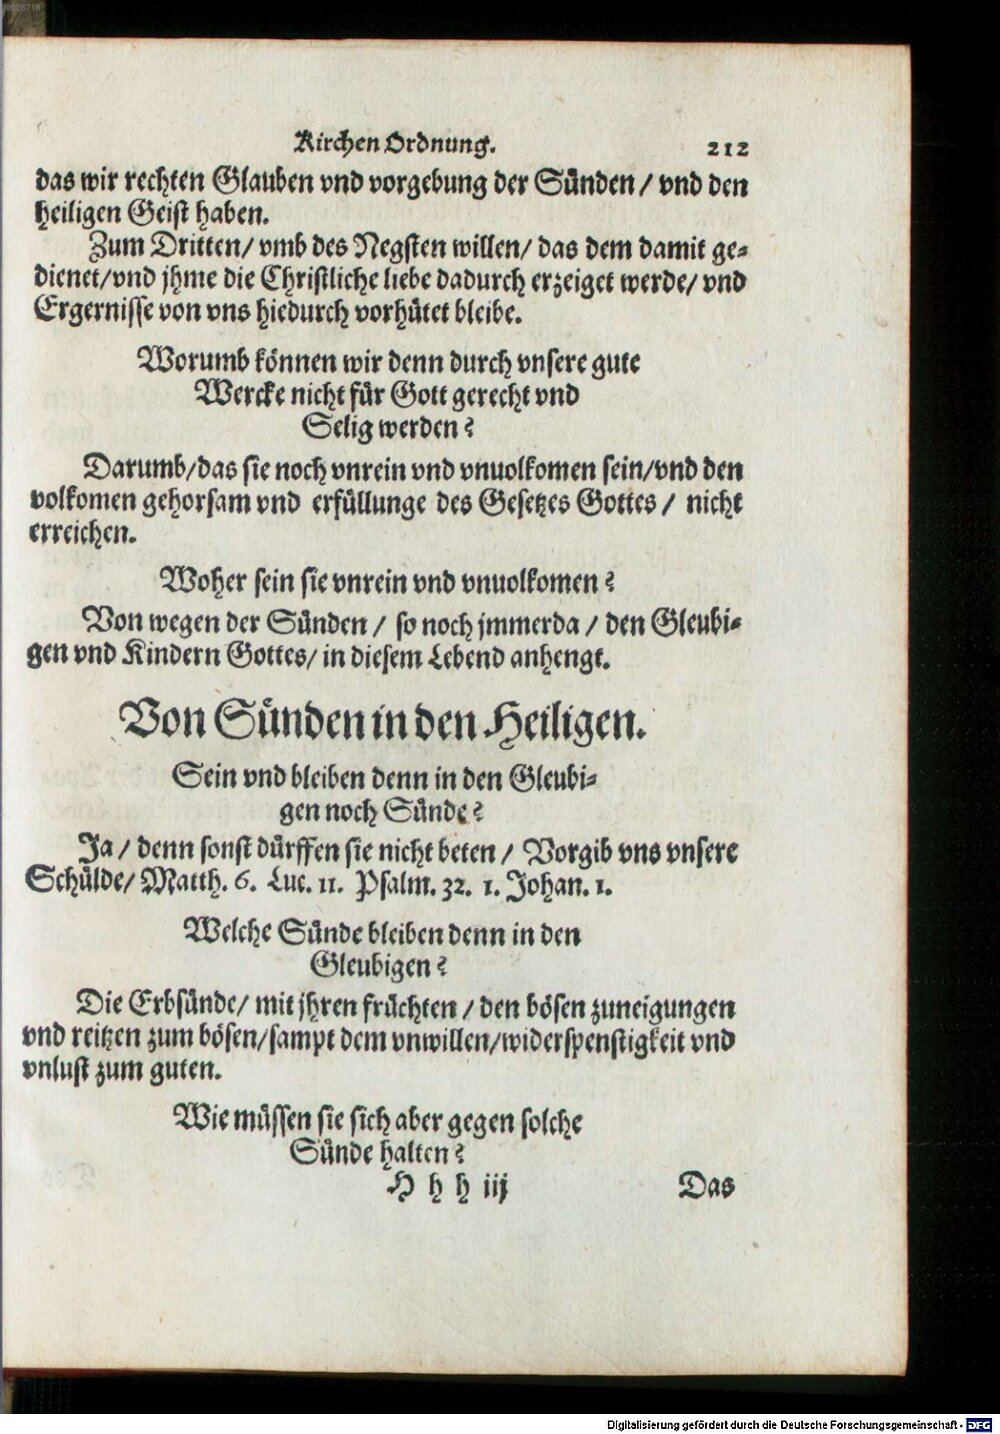 00028716
Kirchen Ordnung. 212
das wir rechten Glauben vnd vorgebung der Sünden / vnd den
heiligen Geist haben.
Zum Dritten / vmb des Negsten willen / das dem damit ge-
dienet / vnd jhme die Christliche liebe dadurch erzeiget werde / vnd
Ergernisse von vns hiedurch vorhütet bleibe.
Worumb können wir denn durch vnsere gute
Wercke nicht für Gott gerecht vnd
Selig werden?
Darumb / das sie noch vnrein vnd vnuolkomen sein / vnd den
volkomen gehorsam vnd erfüllunge des Gesetzes Gottes / nicht
erreichen.
Woher sein sie vnrein vnd vnuolkomen?
Von wegen der Sünden / so noch jmmerda / den Gleubi-
gen vnd Kindern Gottes / in diesem Lebend anhengt.
Von Sünden in den Heiligen.
Sein vnd bleiben denn in den Gleubi-
gen noch Sünde?
Ja / denn sonst dürffen sie nicht beten / Vorgib vns vnsere
Schülde / Matth. 6. Luc. 11. Psalm. 32. 1. Johan. 1.
Welche Sünde bleiben denn in den
Gleubigen?
Die Erbsünde / mit jhren früchten / den bösen zuneigungen
vnd reitzen zum bösen / sampt dem vnwillen / widerspenstigkeit vnd
vnlust zum guten.
Wie müssen sie sich aber gegen solche
Sünde halten?
H h h iij Das
Digitalisierung gefördert durch die Deutsche Forschungsgemeinschaft - DFG